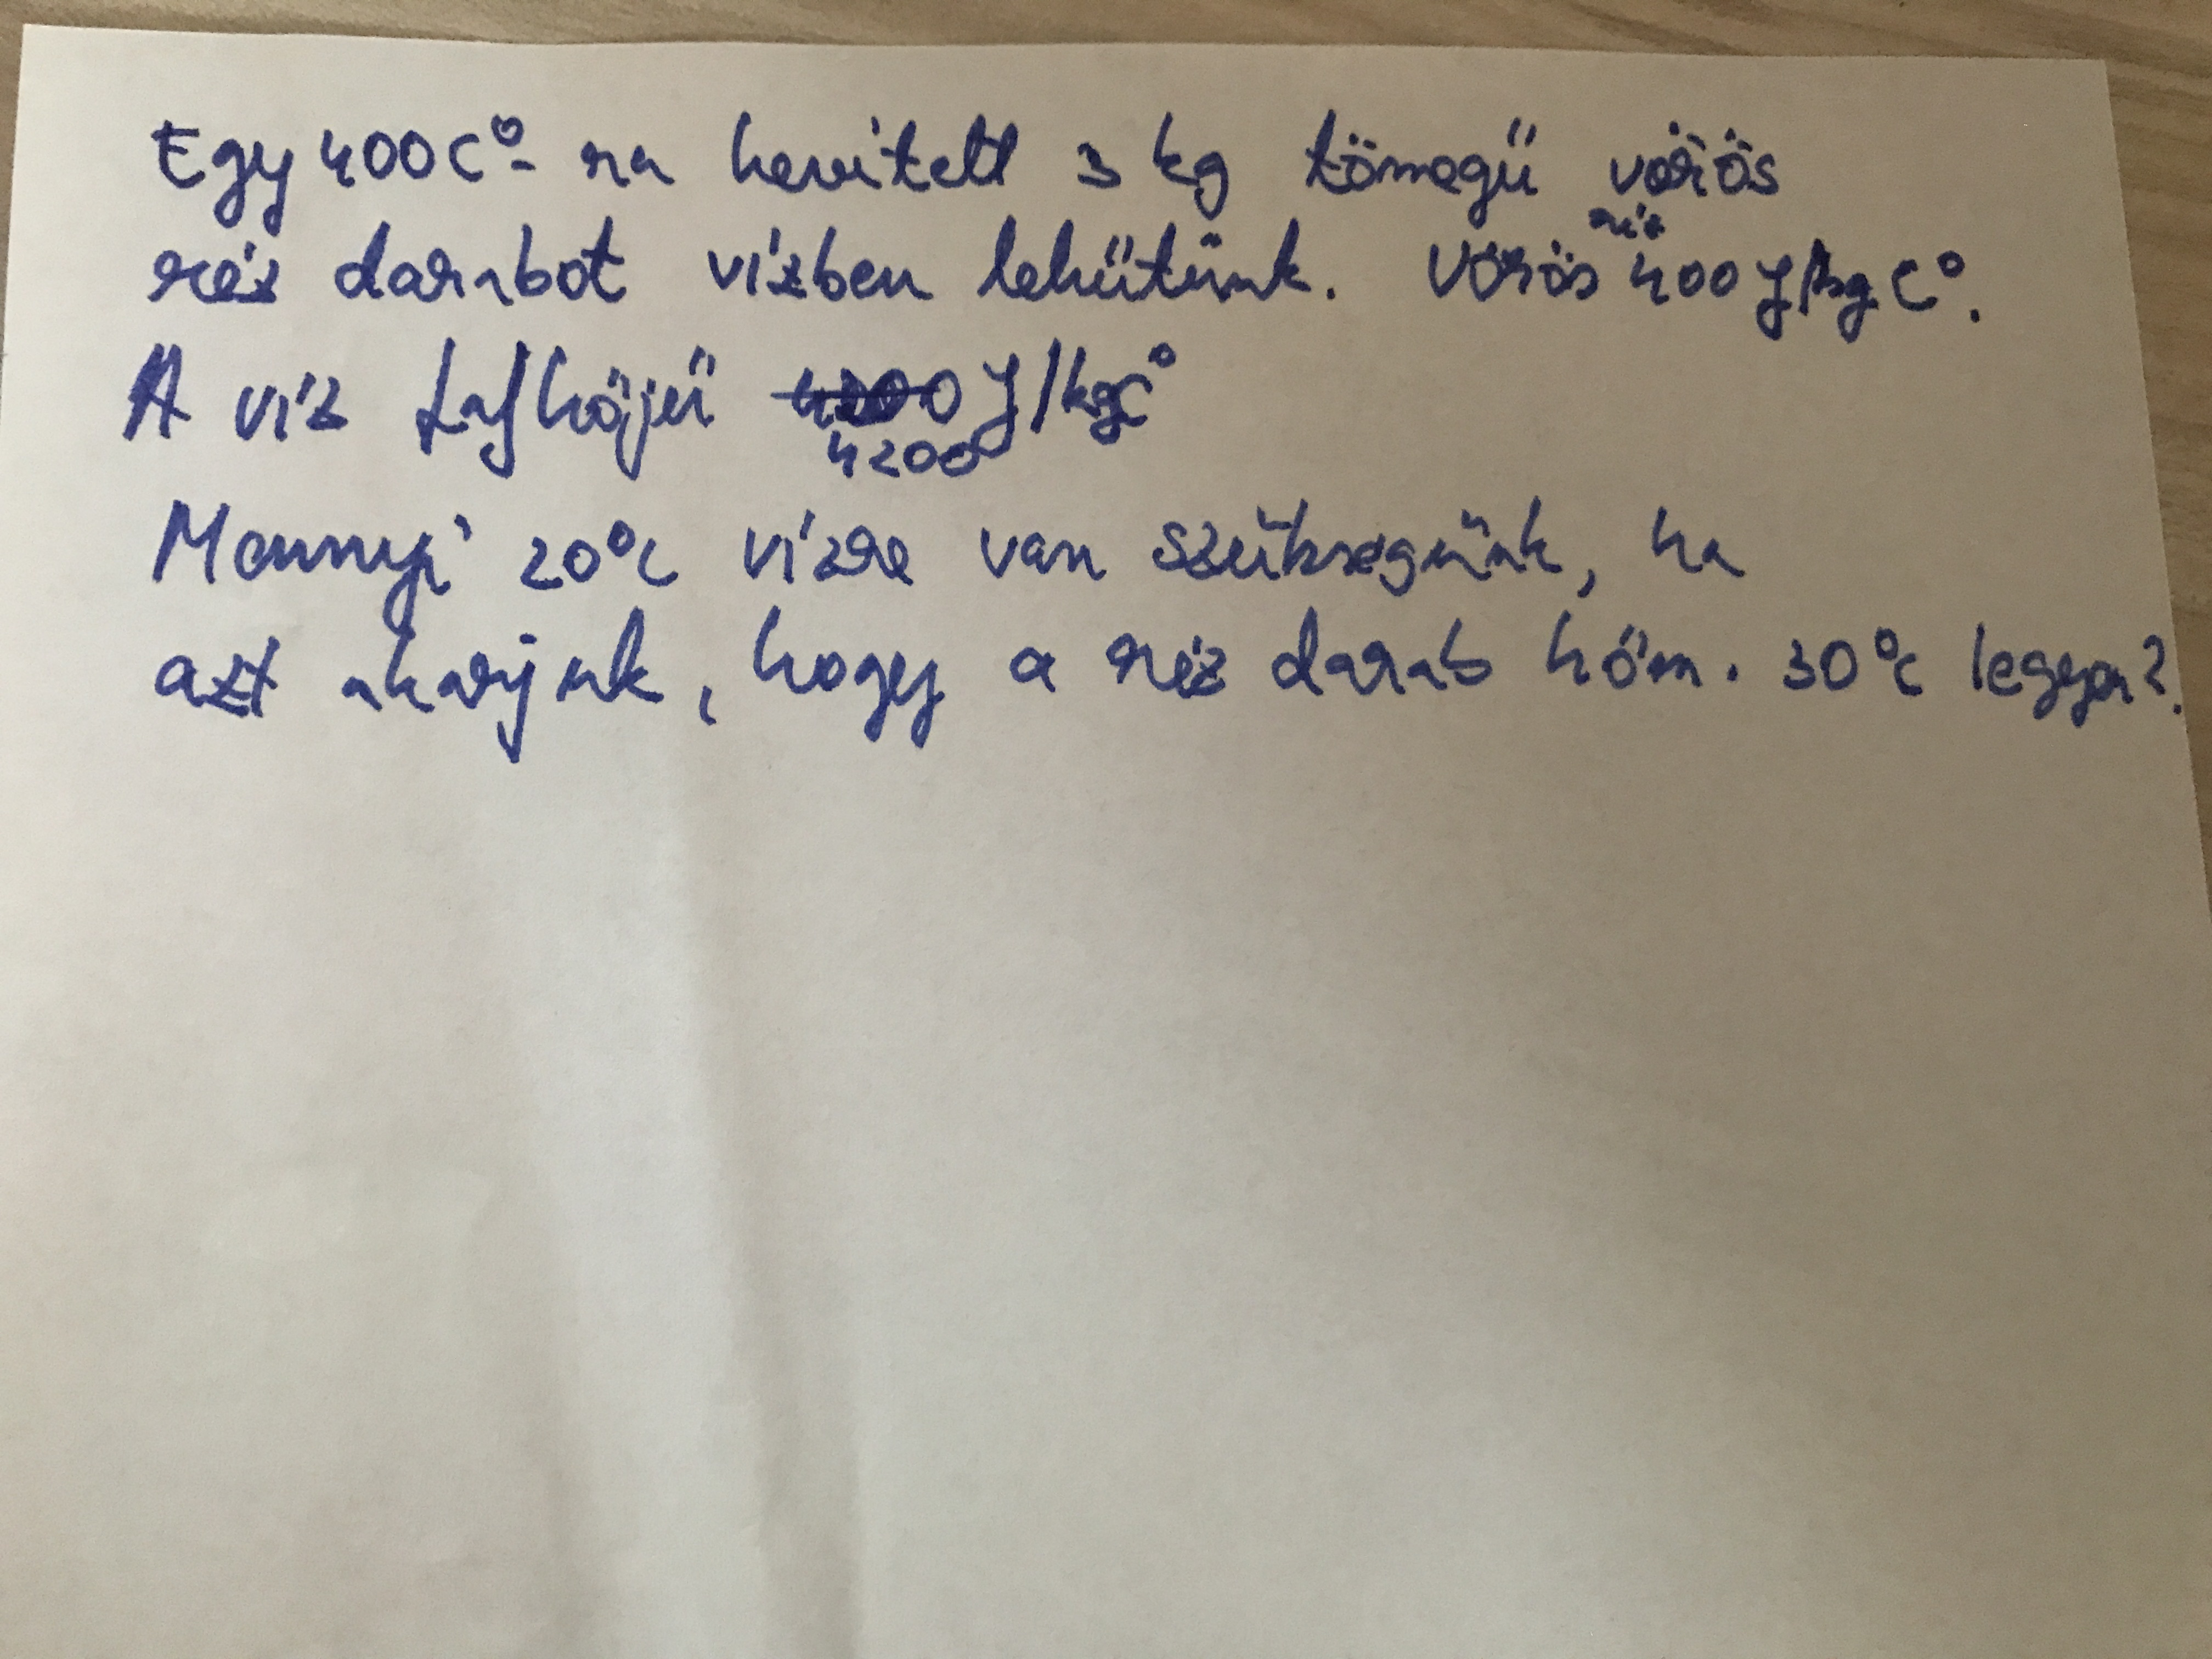 Egy 400C°-ra hevitett 3 kg tömegü vörös
réz darabot vízben lehütünk. Vörös réz 400 J/kg C°.
A víz fajhöjü 4200 J/kgC°
Mennyi 20°C vízre van szükségünk, ha
azt akarjuk, hogy a réz darab höm. 30°C legyen?